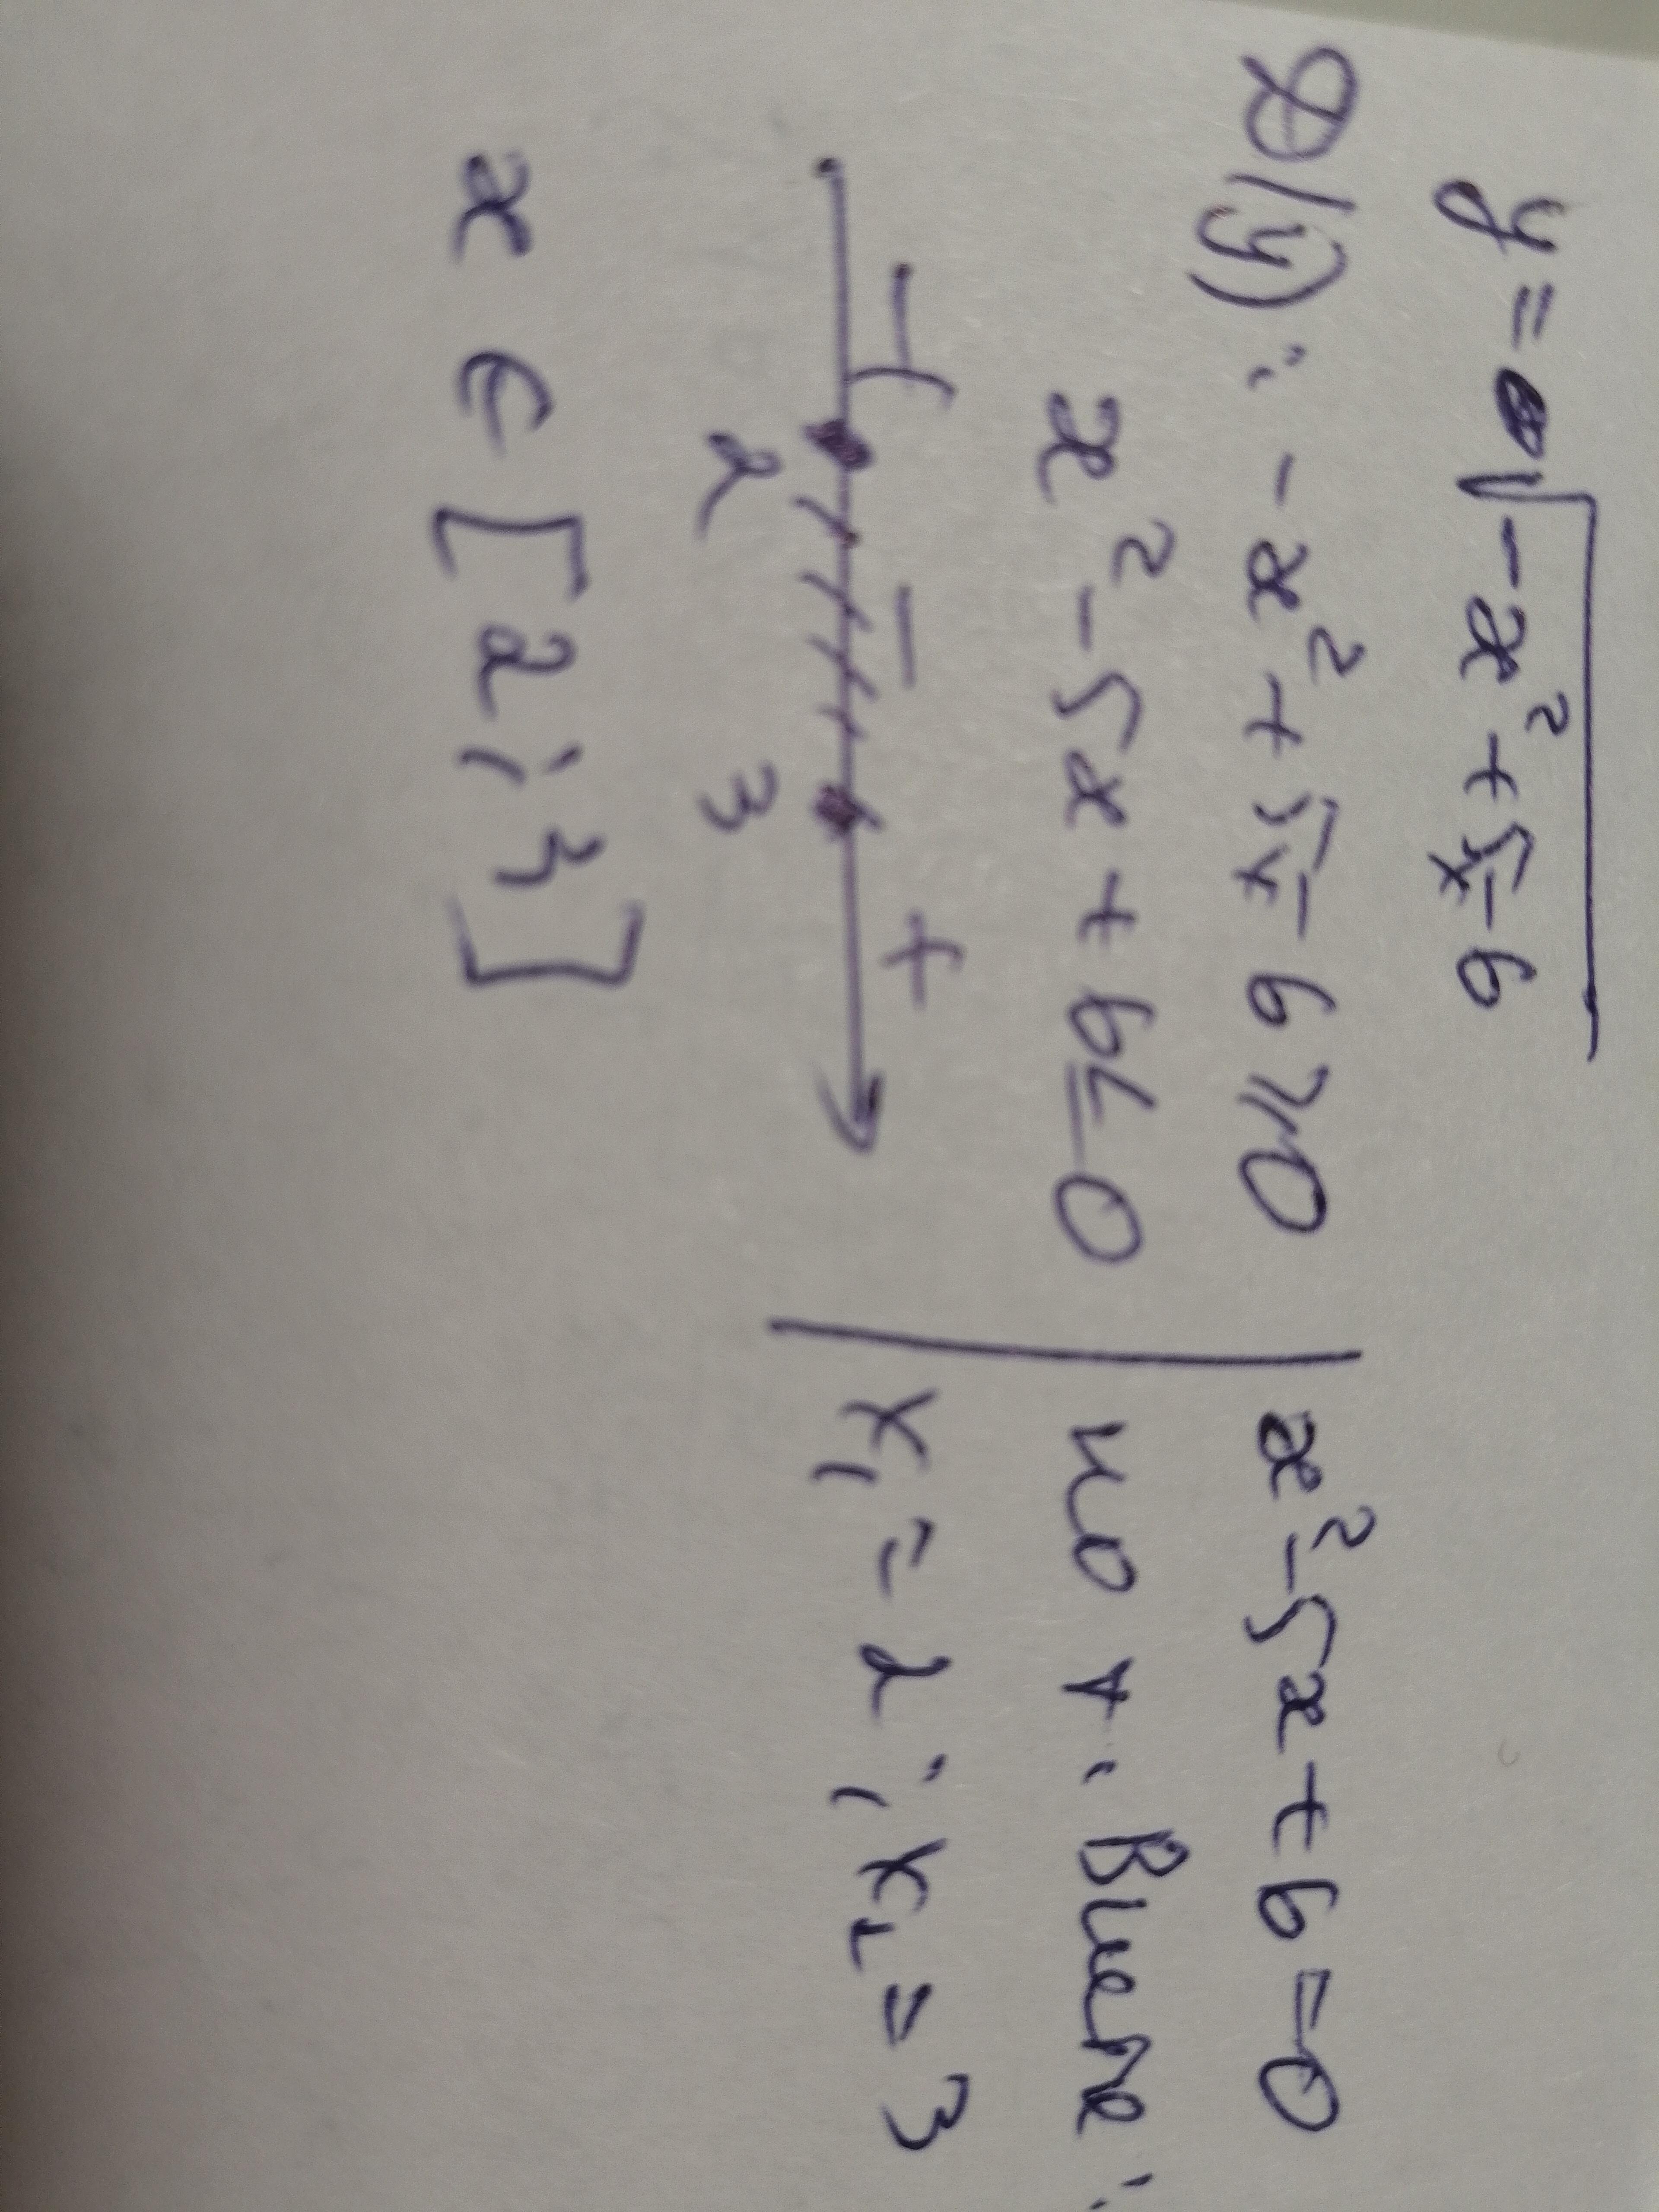 y = √-x²+5x-6
D(y): -x²+5x-6⩾0
x²-5x+6≤0
x²-5x+6=0
по т. Виета:
x₁=2; x₂=3
+ - +
2 3
x ∈ [2;3]